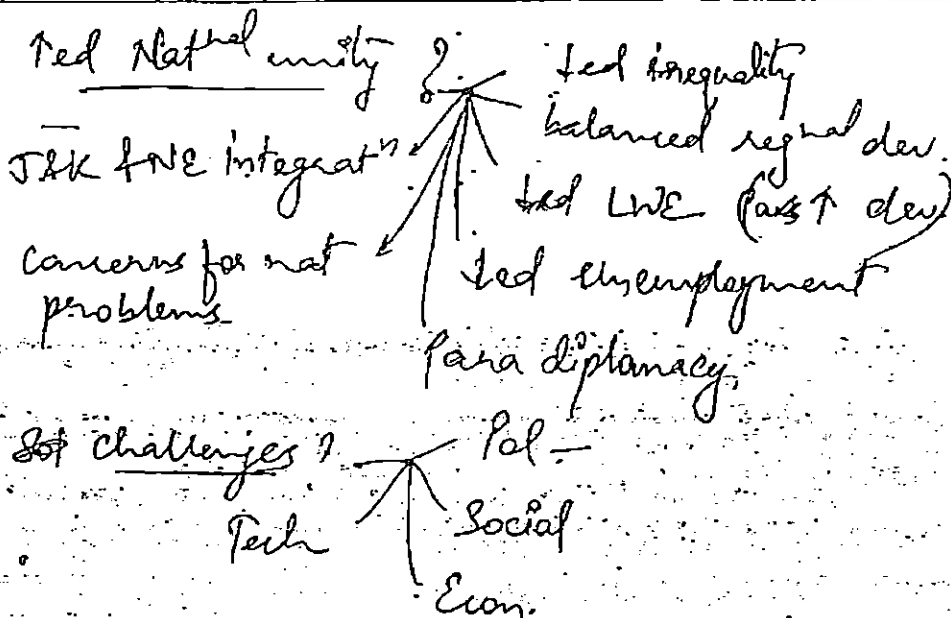 ↑ed Nat^nal unity ?
↓ed inequality
balanced reg^nal dev.
J&K & NE integrat^n
↓ed LWE (as ↑ dev)
concerns for nat problems
↓ed unemployment
Para diplomacy
challenges ?
Pol –
Social
Tech
Econ.